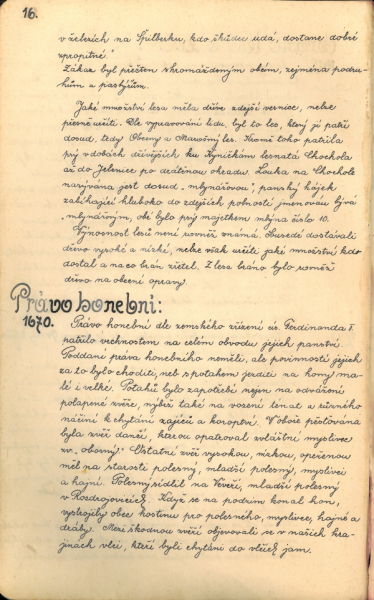 16.
v želízích na Špilberku, kdo škůdce udá, dostane dobré
zpropitné."
Zákaz byl přečten shromážděným obcím, zejména podru-
hům a pastýřům.
Jaké množství lesa měla dříve zdejší vesnice, nelze
přesně určiti. Dle vypravování lidu byl to les, který jí patří
dosud, tedy Obecný a Marošný les. Kromě toho patřila
prý v dobách dřívějších ku Kyničkám lesnatá Chochola
až do Jelenice po drátěnou ohradu. Louka na Chochole
nazývána jest dosud „mlynářovou"; panský hájek
zabíhající hluboko do zdejších polností jmenován bývá
„mlynářovým", obé bylo prý majetkem mlýna číslo 10.
Výnosnost lesů není rovněž známa. Obusedé dostávali
dřevo vysoké a nízké, nelze však určiti jaké množství kdo
dostal a nač brán zřetel. Z lesa bráno bylo rovněž
dřevo na obecní opravy.
Právo honební:
1670.
Právo honební dle zemského zřízení cís. Ferdinanda I.
patřilo vrchnostem na celém obvodu jejich panství.
Poddaní práva honebního neměli, ale povinností jejich
za to bylo choditi, neb s potahem jezditi na hony ma-
lé i velké. Potahů bylo zapotřebí nejen na odvážení
polapené zvěře, nýbrž také na vození tenat a různého
náčiní k chytání zajíců a koroptví. V oboře pěstována
byla zvěř dančí, kterou opatroval zvláštní myslivec
zv. „oborný". Ostatní zvěř vysokou, nízkou, opeřenou
měl na starosti polesný, mladší polesný, myslivci
a hajní. Polesný sídlil na Veveří, mladší polesný
v Rozdrojovicích. Když se na podzim konal hon,
vystrojily obce hostinu pro polesného, myslivce, hajné a
dráby. Mezi škodnou zvěří objevovali se v našich kra-
jinách vlci, kteří byli chytáni do vlčích jam.